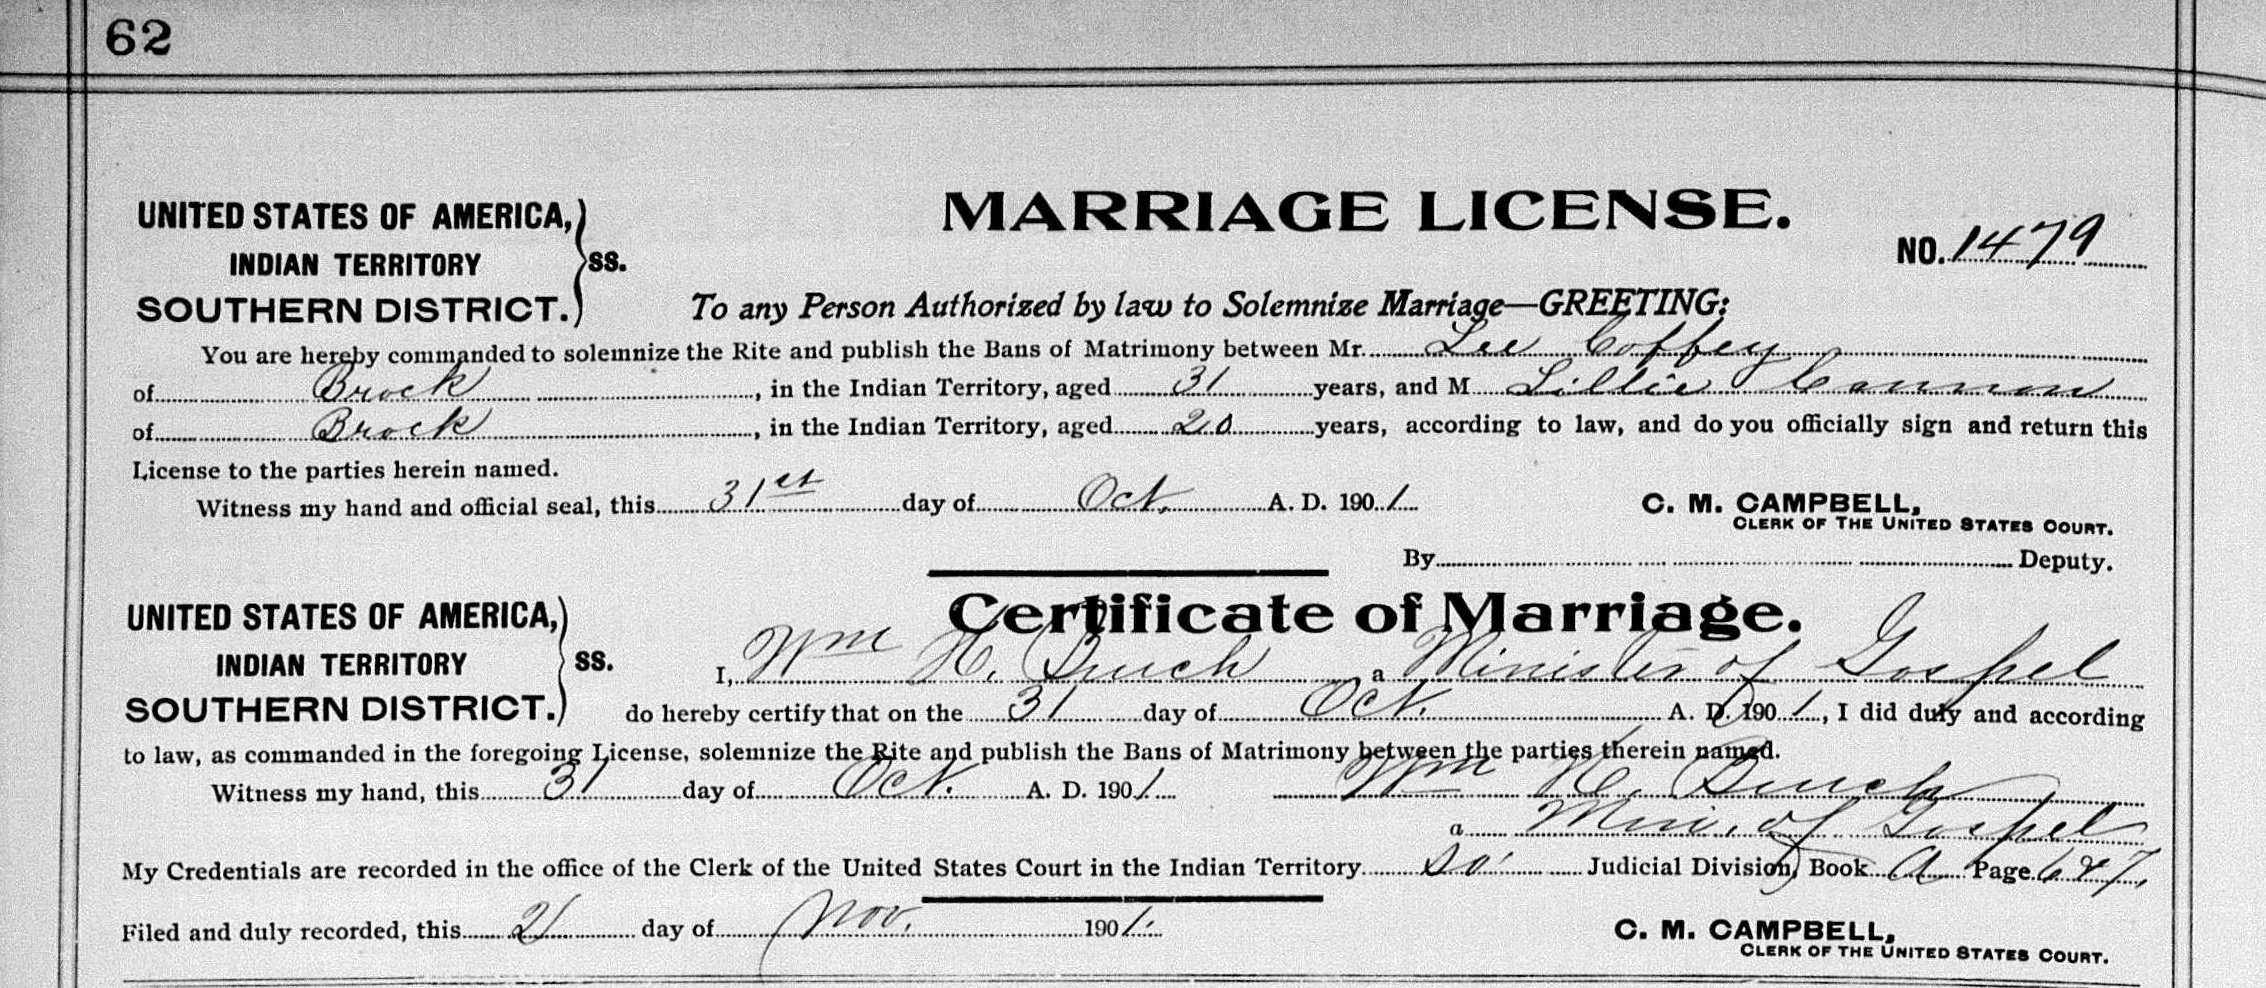 62
MARRIAGE LICENSE.
UNITED STATES OF AMERICA,
INDIAN TERRITORY
SOUTHERN DISTRICT.
SS.
NO. 1479
To any Person Authorized by law to Solemnize Marriage—GREETING:
You are hereby commanded to solemnize the Rite and publish the Bans of Matrimony between Mr. Lee Coffey
of Brock, in the Indian Territory, aged 31 years, and M Lillie Cannon
of Brock, in the Indian Territory, aged 20 years, according to law, and do you officially sign and return this
License to the parties herein named.
Witness my hand and official seal, this 31st day of Oct. A. D. 1901
C. M. CAMPBELL,
CLERK OF THE UNITED STATES COURT.
By Deputy.
Certificate of Marriage.
UNITED STATES OF AMERICA,
INDIAN TERRITORY
SOUTHERN DISTRICT.
SS.
I, Wm H. a Minister of Gospel
do hereby certify that on the 31 day of Oct. A. D. 1901, I did duly and according
to law, as commanded in the foregoing License, solemnize the Rite and publish the Bans of Matrimony between the parties therein named.
Witness my hand, this 31 day of Oct. A. D. 1901 Wm H.
a Min. of Gospel
My Credentials are recorded in the office of the Clerk of the United States Court in the Indian Territory So. Judicial Division, Book A Page 6 & 7.
Filed and duly recorded, this day of Nov. 1901.
C. M. CAMPBELL,
CLERK OF THE UNITED STATES COURT.